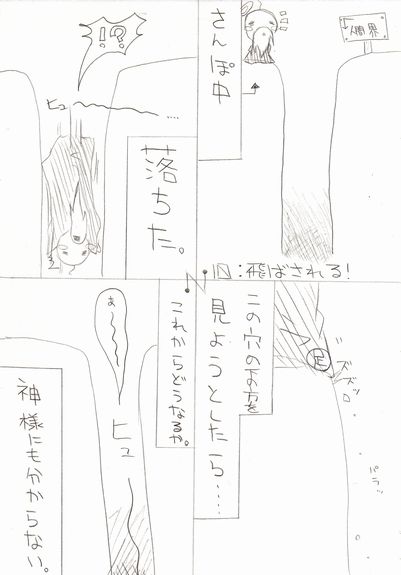 人間界
さんぽ中
No.10:飛ばされる!
この穴の下の穴を
見ようとしたら……
足
ズズッ
パラッ
!?
ヒュ
落ちた。
これからどうなるか。
ぁ〜
ヒュ
神様にも分からない。